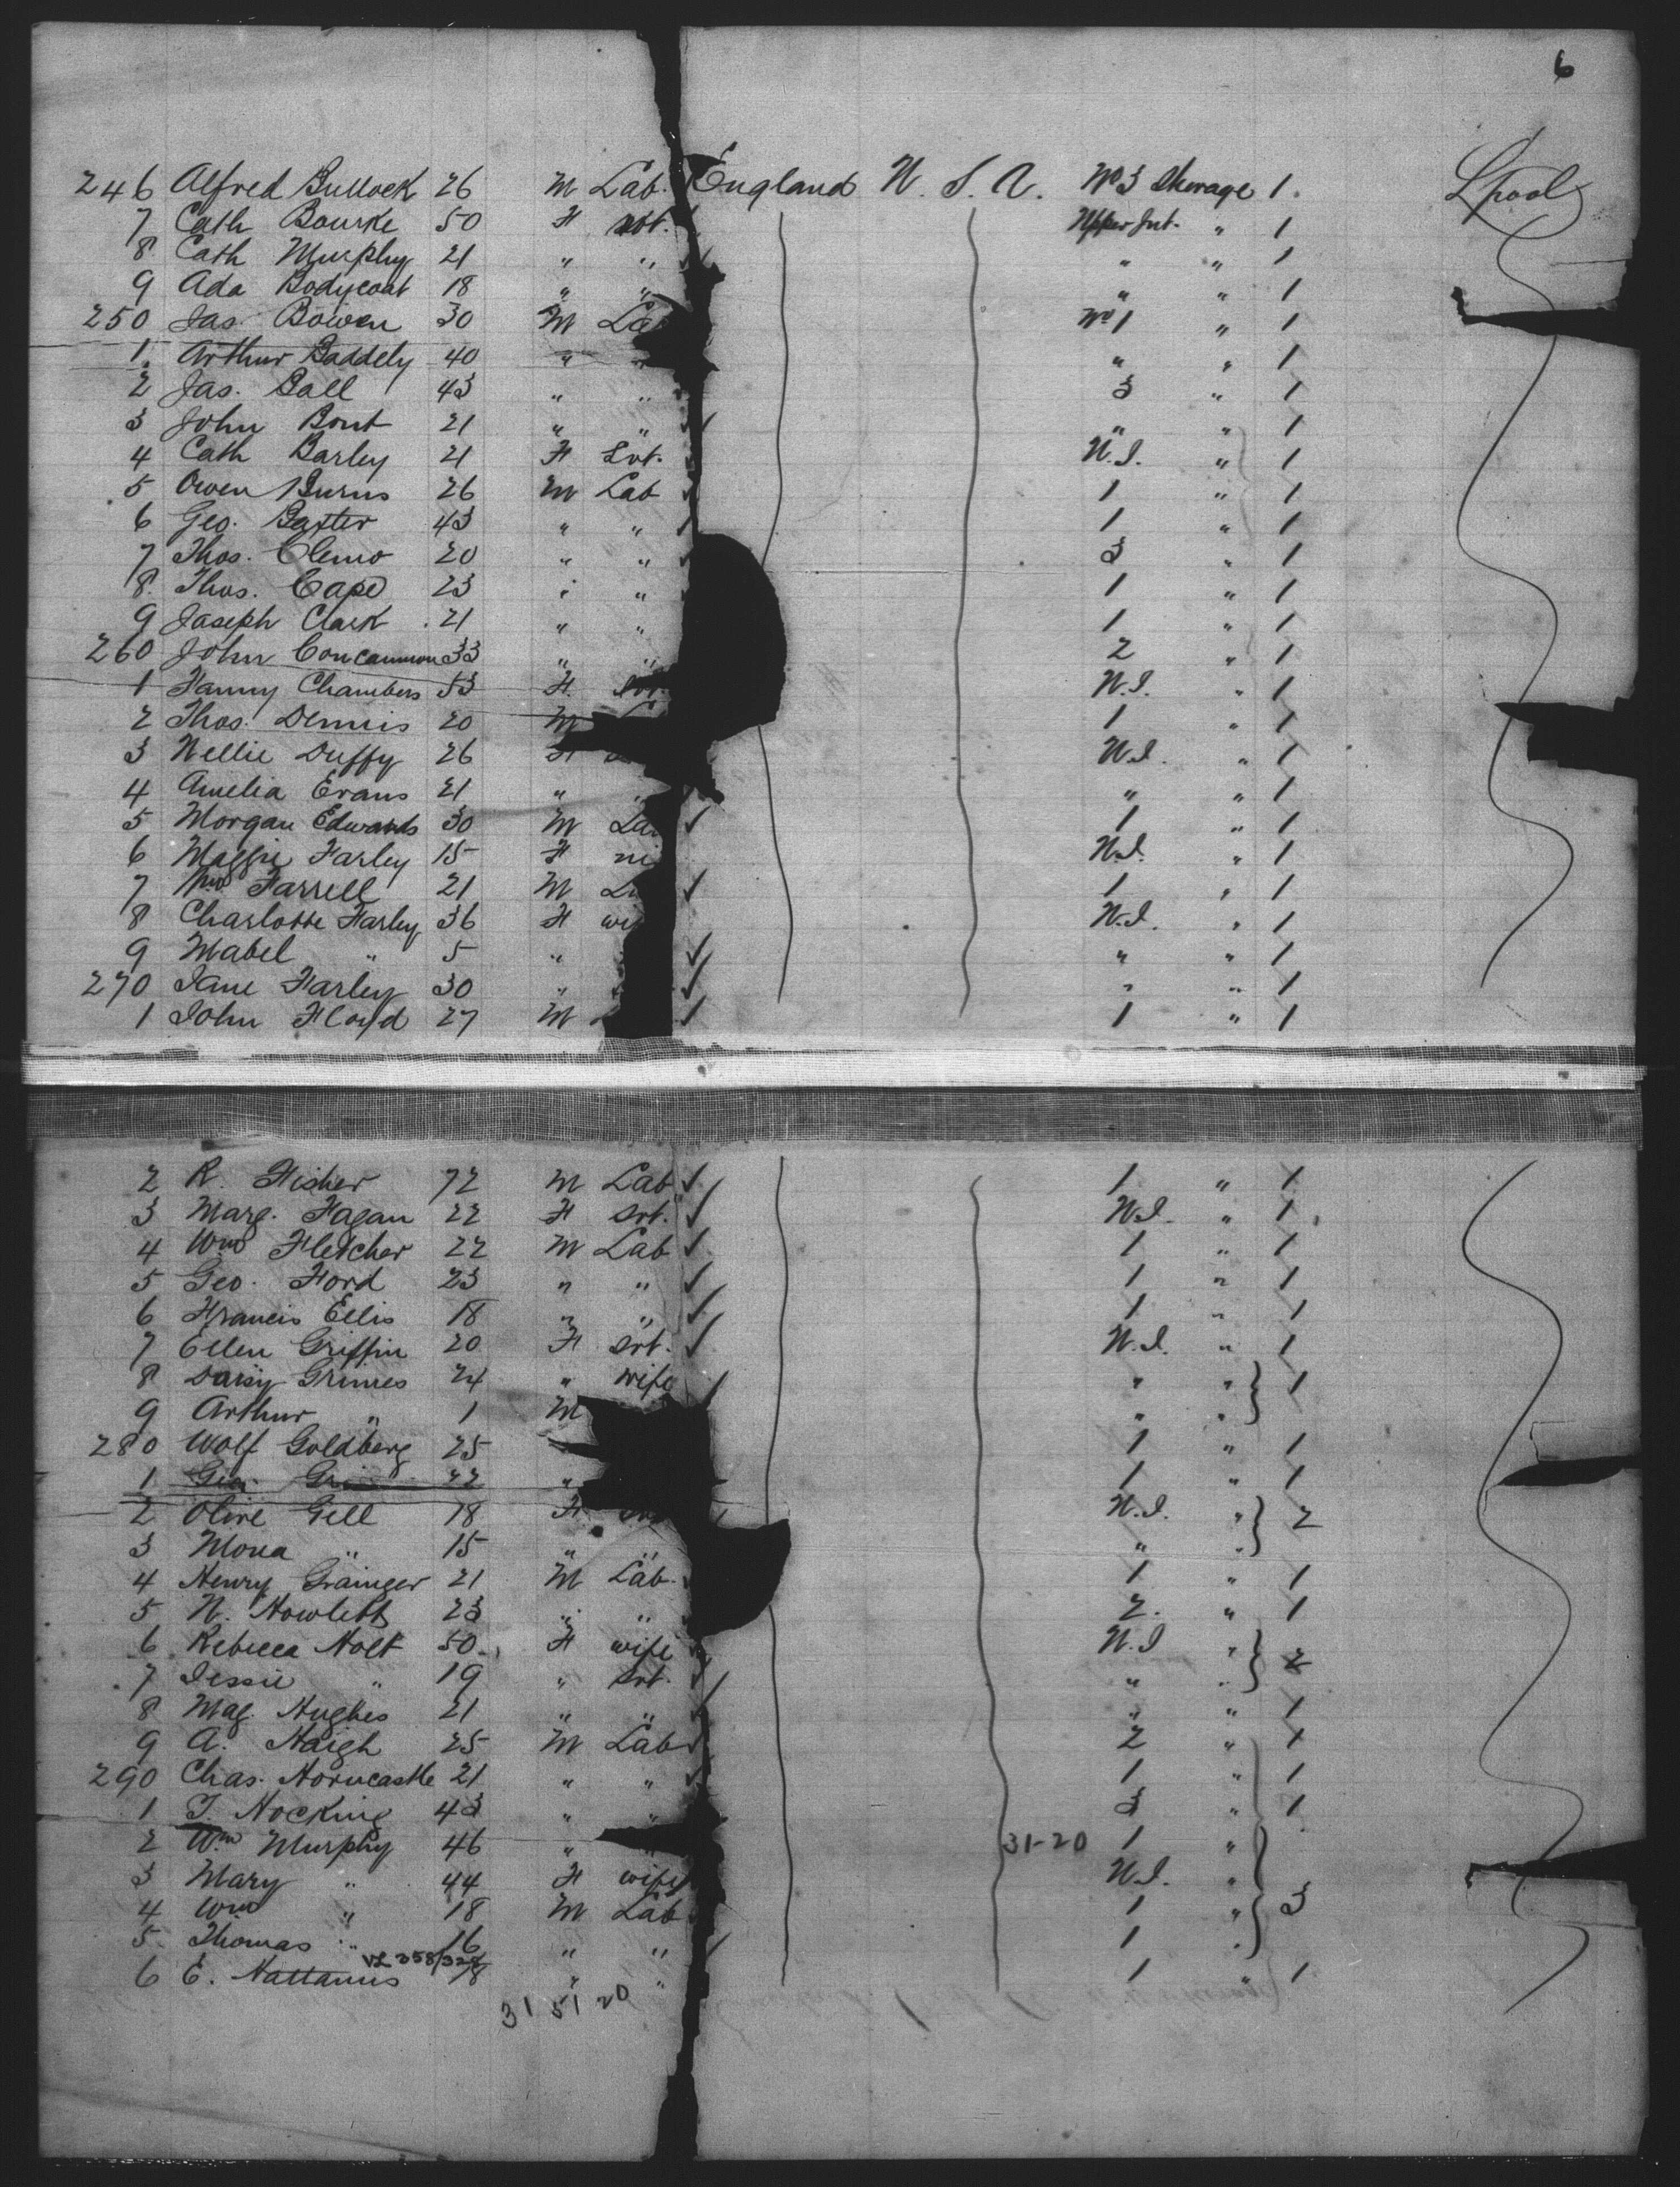 6
246 Alfred Bullock 26 M Lab. England U.S.A. No 3 Sterage 1. Lpool
7 Cath Bourke 50 F srt. Upper Int. " 1
8 Cath Murphy 21 " " " " 1
9 Ada Bodycoat 18 " " " " 1
250 Jas. Bowen 30 M La No 1 " 1
1. Arthur Baddely 40 " " " 1
2 Jas. Ball 43 " " 3 " 1
3 John Bont 21 " " " " 1
4 Cath Barley 21 F Srt. U.I. " 1
5 Owen Burns 26 M Lab 1 " 1
6 Geo. Baxter 43 " " 1 " 1
7 Thos. Clemo 20 " " 3 " 1
8. Thos. Cape 23 " " 1 " 1
9 Joseph Clark 21 " " 1 " 1
260 John Concannon 33 " " 2 " 1
1 Fanny Chambers 53 F. U.I. " 1
2 Thos. Dennis 20 M 1 " 1
3 Nellie Duffy 26 F U.I. " 1
4 Amelia Evans 21 " " " " 1
5 Morgan Edwards 30 M La 1 " 1
6 Maggie Farley 15 F U.I. " 1
7 Wm Farrell 21 M 1 " 1
8 Charlotte Farley 36 F wi U.I. " 1
9 Mabel " 5 " " " 1
270 Jane Farley 30 " " " 1
1 John Floyd 27 M 1 " 1
2 R. Fisher 72 M Lab 1 " 1
3 Marg. Fagan 22 F srt. U.I. " 1
4 Wm Fletcher 22 M Lab 1 " 1
5 Geo. Ford 23 " " 1 " 1
6 Francis Ellis 18 " " 1 " 1
7 Ellen Griffin 20 F srt. U.I. " 1
8 Daisy Grimes 24 " wife " " 1
9 Arthur " 1 M " "
280 Wolf Goldberg 25 1 " 1
1 Geo. 22 " 1 " 1
2 Olive Gell 18 F U.I. " 2
3 Mona " 15 " " " "
4 Henry Grainger 21 M Lab. 1 " 1
5 N. Howlett 23 " " 2. " 1
6 Rebecca Holt 50 F wife U.I " 2
7 Jessie " 19 " srt. " "
8 Mag. Hughes 21 " " " " 1
9 A. Haigh 25 M Lab 2 " 1
290 Chas. Horncastle 21 " " 1 " 1
1 T. Hocking 43 " " 3 " 1
2 Wm Murphy 46 " " 31-20 1 "
3 Mary " 44 F wife U.I. "
4 Wm " 18 M Lab 1 " 3
5. Thomas " 16 " " 1 "
6 E. 18 " " 1 " 1
31 51 20